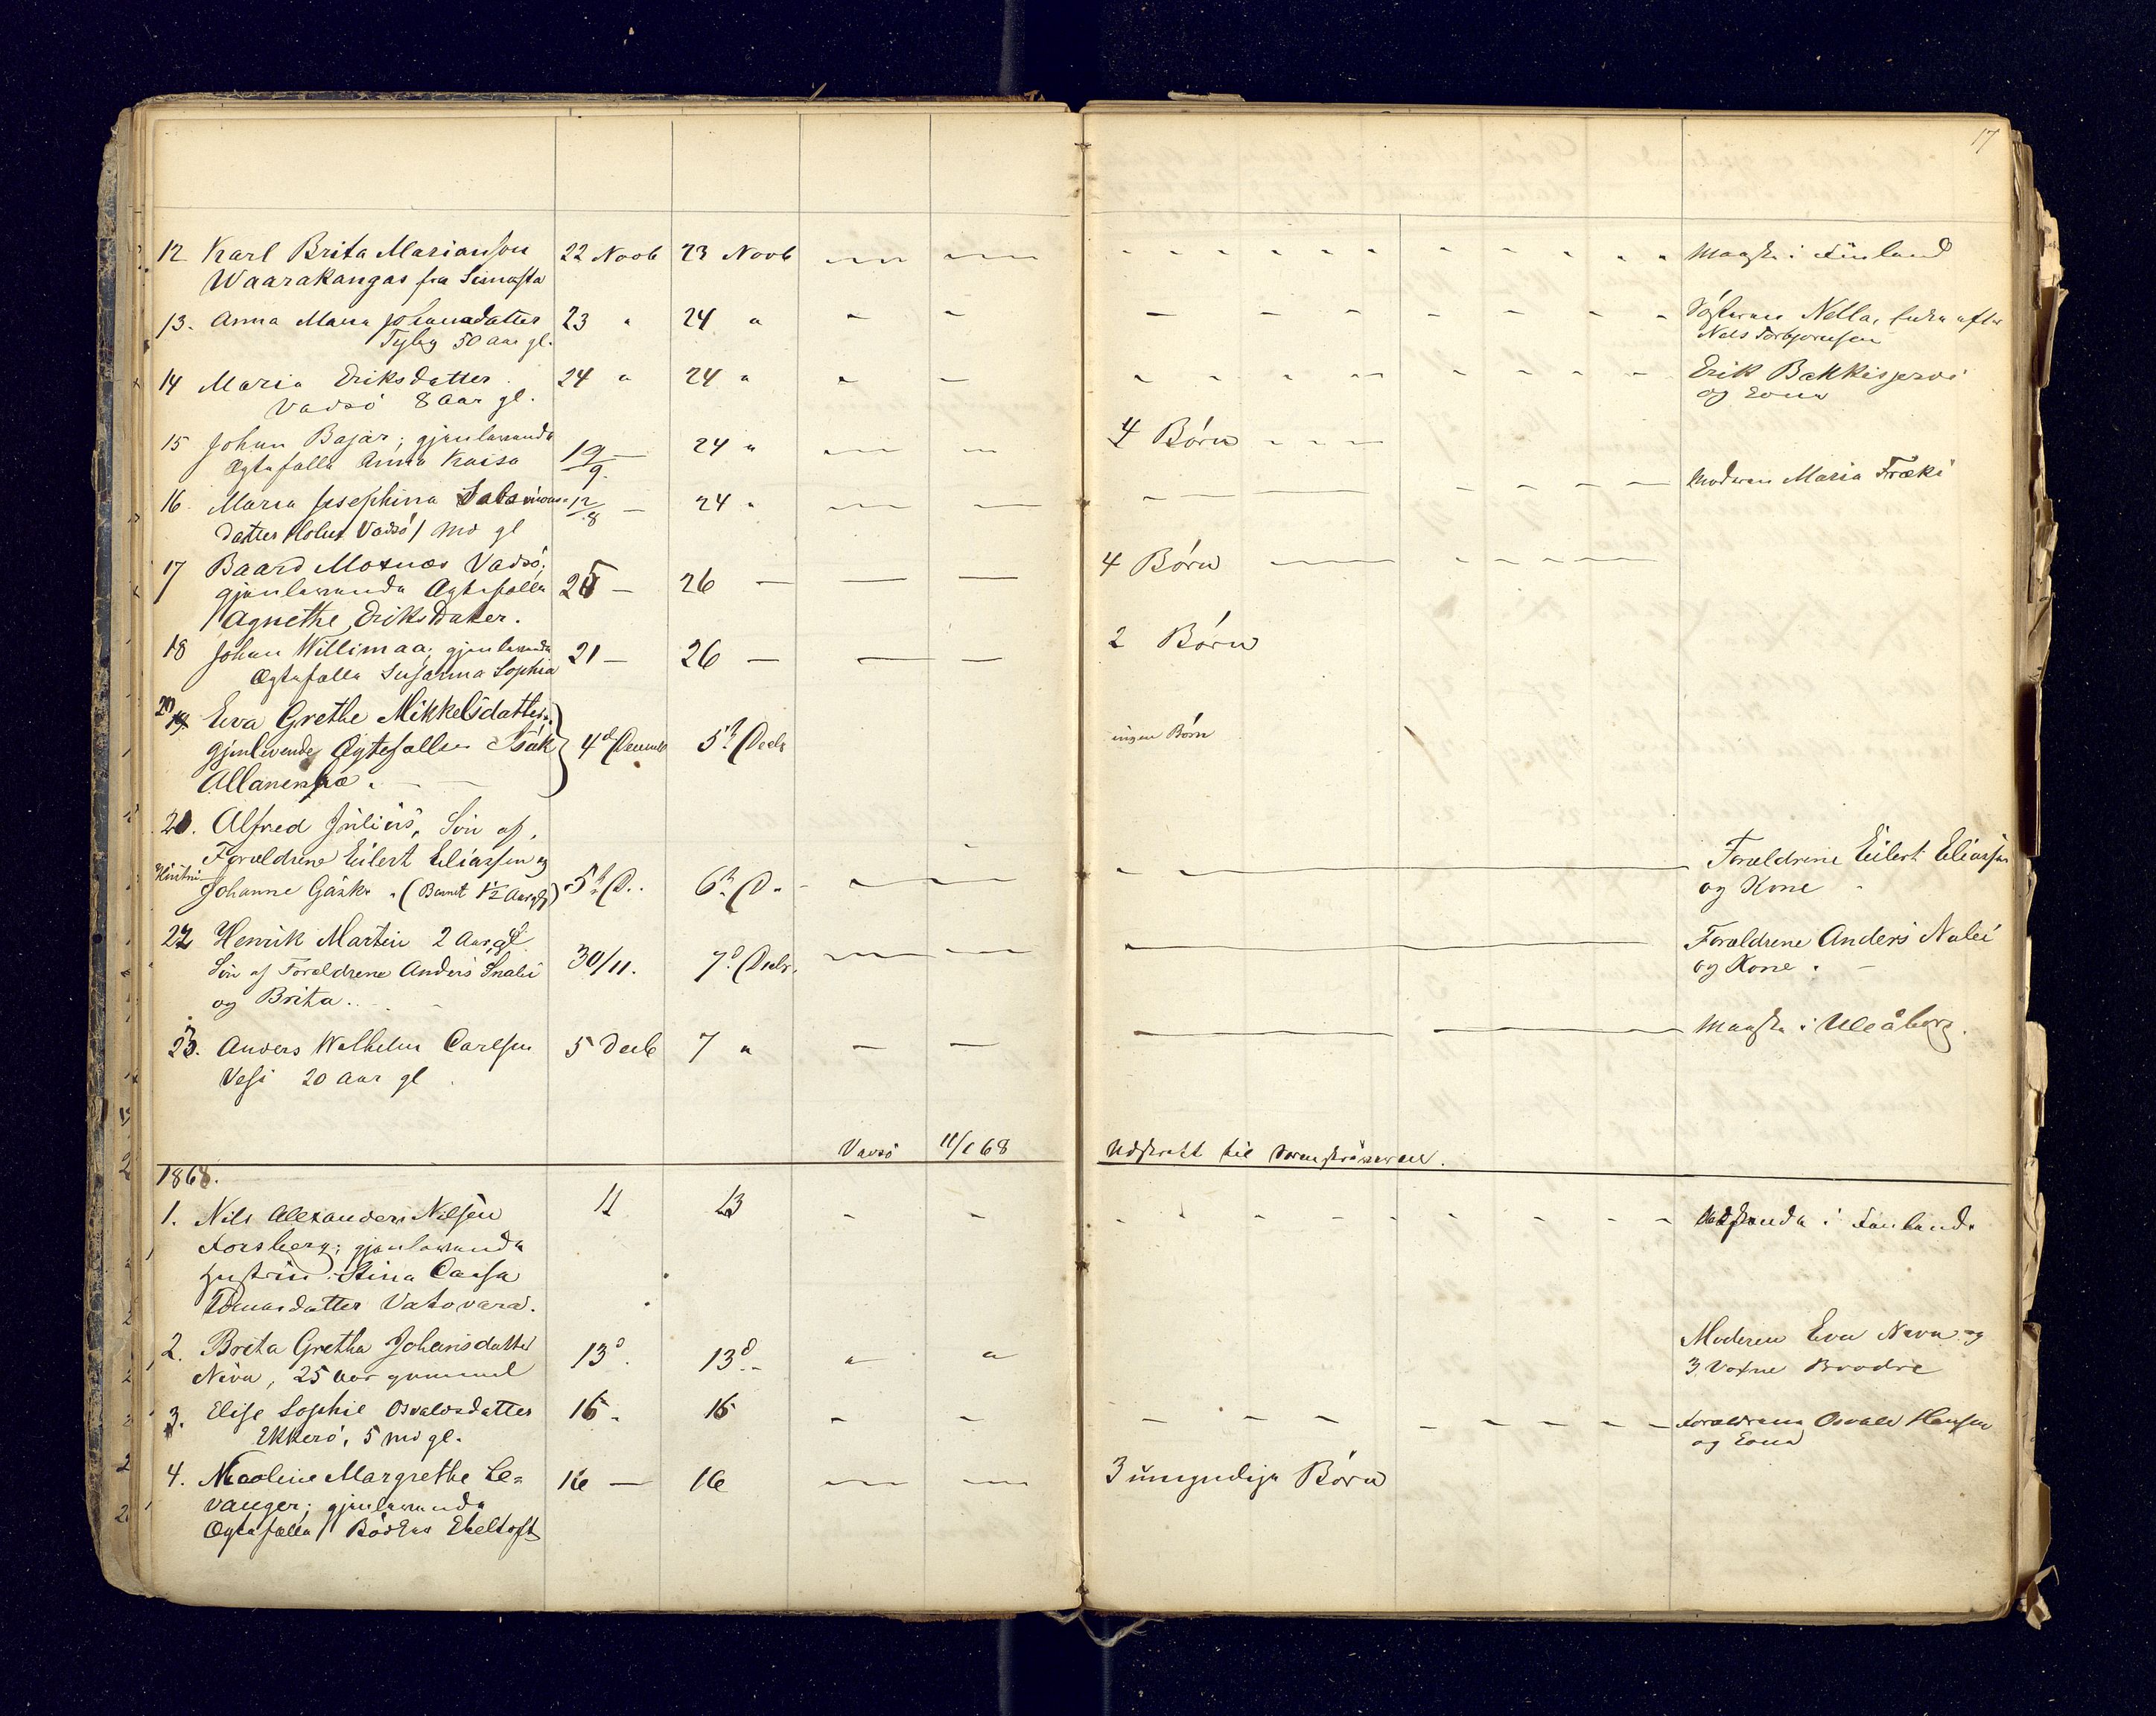 17
12 Karl Brita Marianson 22 Novb 23 Novb
Waarakangas fra Simosta
Maaske i Finland
13. Anna Maria datter 23 " 24 "
50 Aar gl.
Søsteren Nella,
Nels Torbjørnsen
14 Maria Eriksdatter 24 " 24 "
Vadsö 8 Aar gl.
Erik Bakkisjervi
og Kone
15 Johan Bajar; gjenlevende 19/9 24 "
Ægtefælle Anna Kaisa
4 Børn
16. Maria Josephina Salomons= 12/8 — 24 "
datter Vadsö 1 Md gl
Moderen Maria Fræki
17 Baard Moxnæs Vadsö;
gjenlevende Ægtefælle 25 — 26 —
Agnethe Eriksdatter.
4 Børn
18 Johan Willimaa; gjenlevende 21 — 26 —
Ægtefælle Susanna Sophia
2 Børn
20 19 Eva Grethe Mikkelsdatter.
gjenlevende Ægtefælle Isak 4de Decemb 5te Decb
Allanenpæ.
ingen Børn
21. Alfred Julius, Sön af
Forældrene Eilert Eliassen og
Johanne (Barnet 1½ Aar gl) 5te D. 6te D.
Forældrene Eilert Eliassen
og Kone
22 Henrik Martin 2 Aar gl
Sön af Forældrene Anders Snalei 30/11. 7de Decbr.
og Brita.
Forældrene Anders Nalei
og Kone.
23. Anders Wilhelm Carlsen 5 Decb 7 "
Vesi 20 Aar gl
Maaske i Uleåborg.
Vadsö 11/1 68 Udskrift til Sorenskriveren.
1868.
1. Nils Alexander Nilsen 11 13
Forsberg; gjenlevende
Hustru Stina Caisa
Tomasdatter Vatovara.
i Finland.
2. Brita Gretha Johansdatter 13d. 13d.
Niva, 25 aar gammel
Moderen Eva Niva og
3 Voxne Brødre
3. Elise Sophie Osvaldsdatter 15 15
Ekkerö, 5 Md gl.
Forældrene Osvald Hansen
og Kone
4. Nicoline Margrethe Le= 16 — 16
vanger; gjenlevende
Ægtefælle Bödker Ebeltoft
3 umyndige Børn